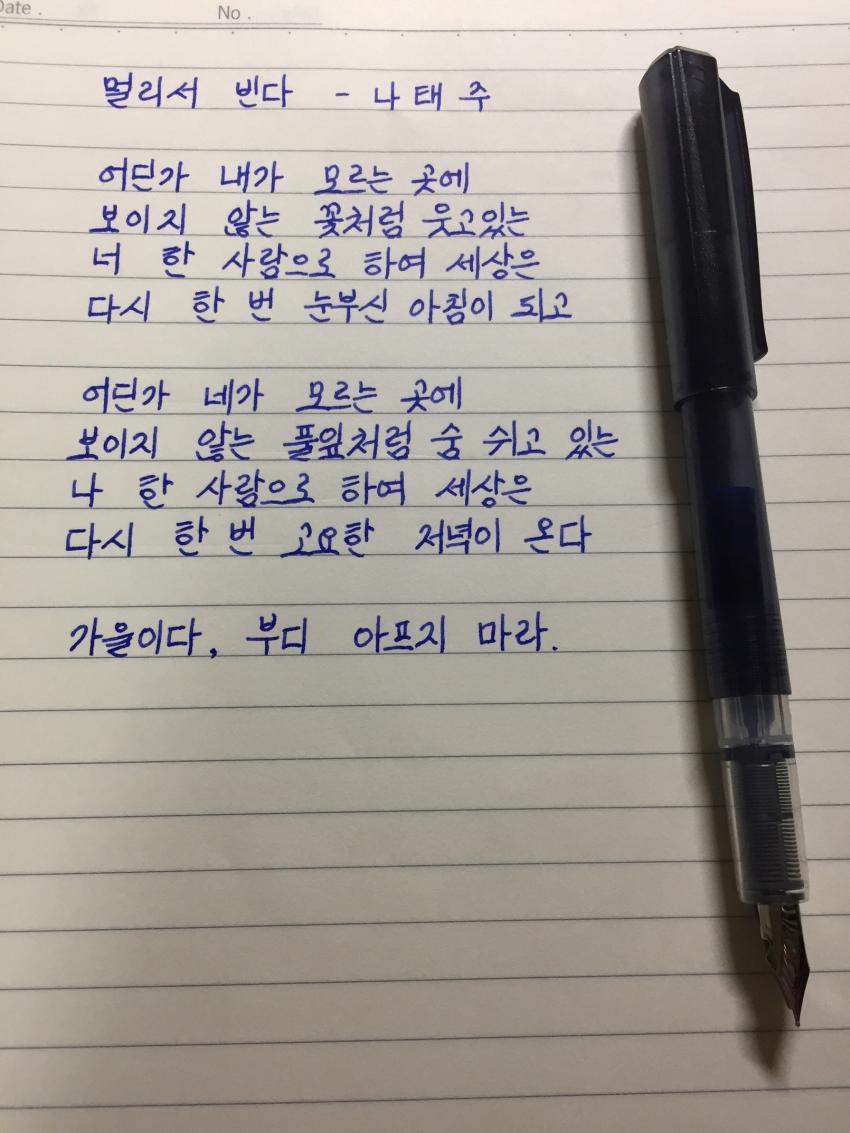 Date .
No .
멀리서 빈다 - 나태주
어딘가 내가 모르는 곳에
보이지 않는 꽃처럼 웃고있는
너 한 사람으로 하여 세상은
다시 한 번 눈부신 아침이 되고
어딘가 네가 모르는 곳에
보이지 않는 풀잎처럼 숨 쉬고 있는
나 한 사람으로 하여 세상은
다시 한 번 고요한 저녁이 온다
가을이다, 부디 아프지 마라.